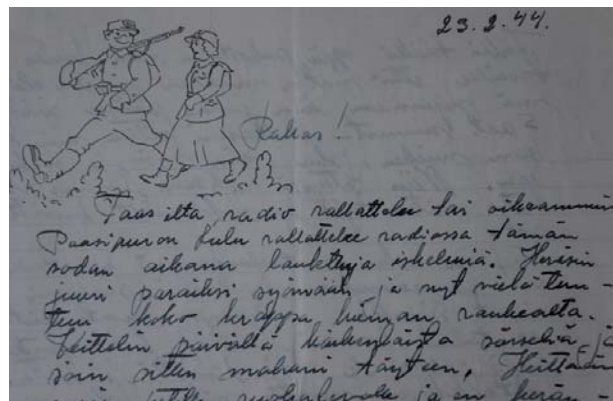 23.2.44.
Rakas!
Taas ilta, radio rallattelee tai oikeammin
Paasipuron Lulu rallattelee radiossa tämän
sodan aikana laulettuja iskelmiä. Heräsin
juuri parăiksi syömään ja nyt vielä tun-
tuu koko kroppa hieman raukealta.
Keittelin päivällä
soin sitten mahani täyteen. Heittäydyin
ja en herän-